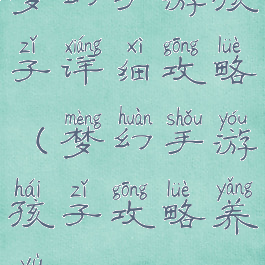 梦幻手游孩
zǐ xiáng xì gōng lüè
子详细攻略
mèng huàn shǒu yóu
（梦幻手游
hái zǐ gōng lüè yǎng
孩子攻略养
yù